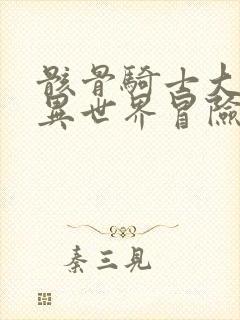 骸骨騎士大
異世界冒險
秦三見